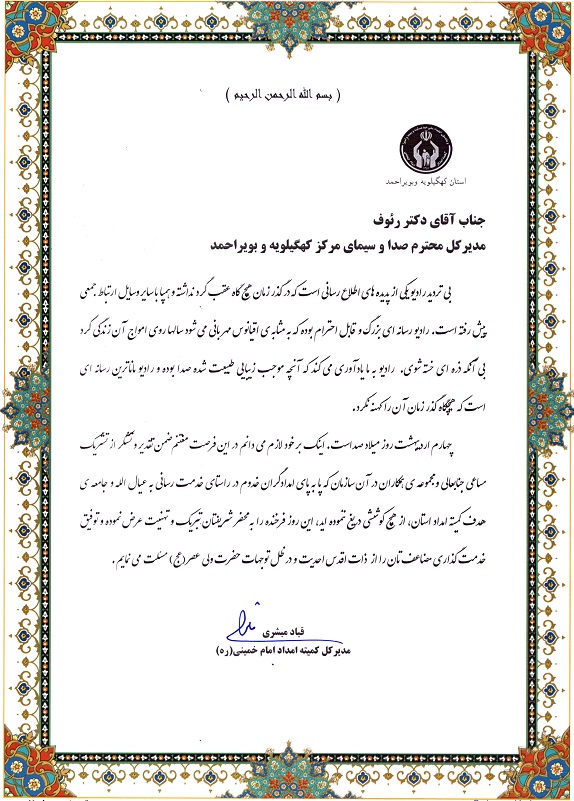 ( بسم الله الرحمن الرحیم )
استان کهگیلویه وبویراحمد
جناب آقای دکتر رئوف
مدیرکل محترم صدا و سیمای مرکز کهگیلویه و بویراحمد
بی تردید رادیو یکی از پدیده های اطلاع رسانی است که در گذر زمان هیچ گاه عقب گرد نداشته و همپا با سایر وسایل ارتباط جمعی
پیش رفته است. رادیو رسانه ای بزرگ و قابل احترام بوده که به مثابه ی اقیانوس مهربانی می شود سالها روی امواج آن زندگی کرد
بی آنکه ذره ای خسته شوی. رادیو به ما یادآوری می کند که آنچه موجب زیبایی طبیعت شده صدا بوده و رادیو ماناترین رسانه ای
است که هیچگاه گذر زمان آن را کهنه نکرد.
چهارم اردیبهشت روز میلاد صداست. اینک بر خود لازم می دانم در این فرصت مغتنم ضمن تقدیر و تشکر از تشریک
مساعی جنابعالی و مجموعه ی همکاران در آن سازمان که پا به پای امدادگران خدوم در راستای خدمت رسانی به عیال الله و جامعه ی
هدف کمیته امداد استان، از هیچ کوششی دریغ ننموده اید، این روز فرخنده را به محضر شریفتان تبریک و تهنیت عرض نموده و توفیق
خدمت گذاری مضاعف تان را از ذات اقدس احدیت و در ظل توجهات حضرت ولی عصر(عج) مسئلت می نمایم.
قباد مبشری
مدیرکل کمیته امداد امام خمینی(ره)